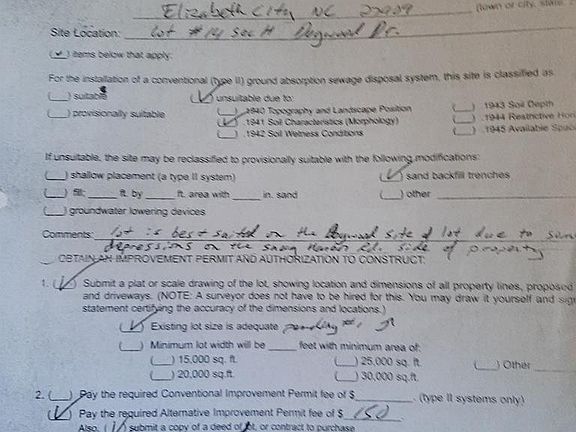 Elizabeth City NC 27909
(town or city, state,
Site Location: lot #14 sec H Dogwood Dr.
(✓) items below that apply:
For the installation of a conventional (type II) ground absorption sewage disposal system, this site is classified as
(__) suitable (✓) unsuitable due to:
(__) provisionally suitable (__) .1940 Topography and Landscape Position (__) .1943 Soil Depth
(✓) .1941 Soil Characteristics (Morphology) (__) .1944 Restrictive Hori
(__) .1942 Soil Wetness Conditions (__) .1945 Available Space
If unsuitable, the site may be reclassified to provisionally suitable with the following modifications:
(__) shallow placement (a type II system) (✓) sand backfill trenches
(__) fill: ____ ft. by ____ ft. area with ____ in. sand (__) other
(__) groundwater lowering devices
Comments: lot is best suited on the Dogwood side of lot due to some
depressions on the Snug Harbor Rd. side of property
__ OBTAIN AN IMPROVEMENT PERMIT AND AUTHORIZATION TO CONSTRUCT:
1. (✓) Submit a plat or scale drawing of the lot, showing location and dimensions of all property lines, proposed
and driveways. (NOTE: A surveyor does not have to be hired for this. You may draw it yourself and sign
statement certifying the accuracy of the dimensions and locations.)
(✓) Existing lot size is adequate pending #1
(__) Minimum lot width will be ____ feet with minimum area of:
(__) 15,000 sq. ft. (__) 25,000 sq. ft. (__) Other
(__) 20,000 sq. ft. (__) 30,000 sq. ft.
2. (__) Pay the required Conventional Improvement Permit fee of $________. (type II systems only)
(✓) Pay the required Alternative Improvement Permit fee of $ 150
Also, (✓) submit a copy of a deed of lot, or contract to purchase